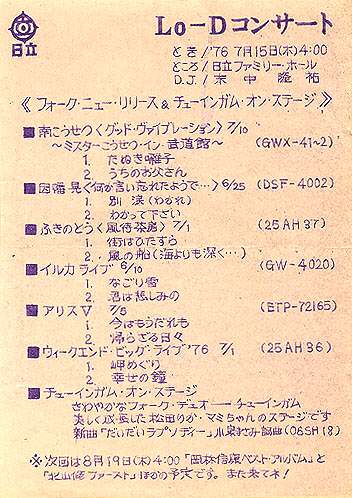 日立
Lo-Dコンサート
とき/'76 7月15日(木)4:00
ところ/日立ファミリー・ホール
D.J./末中隆祐
《フォーク・ニュー・リリース&チューインガム・オン・ステージ》
■南こうせつ〈グッド・ヴァイブレーション〉7/10
〜ミスターこうせつ・イン・武道館〜 (GWX-41~2)
1. たぬき囃子
2. うちのお父さん
■因幡 晃〈何か言い忘れたようで…〉6/25 (DSF-4002)
1. 別涙(わかれ)
2. わかって下さい
■ふきのとう〈風待茶房〉7/1 (25AH 37)
1. 街はひたすら
2. 風の船(海よりも深く…)
■イルカ ライブ 6/10 (GW-4020)
1. なごり雪
2. 君は悲しみの
■アリスⅤ 7/5 (ETP-72165)
1. 今はもうだれも
2. 帰らざる日々
■ウィークエンド・ビッグ・ライブ'76 7/1 (25AH 36)
1. 岬めぐり
2. 幸せの鐘
■チューインガム・オン・ステージ
さわやかなフォーク・デュオ── チューインガム
美しく成長した松田りか・マミちゃんのステージです
新曲「だいだいラプソディー」小泉まさみ編曲(06SH 18)
※次回は8月19日(木)4:00「岡林信康ベスト・アルバム」と
「北山修ファースト」ほかの予定です。また来てネ!